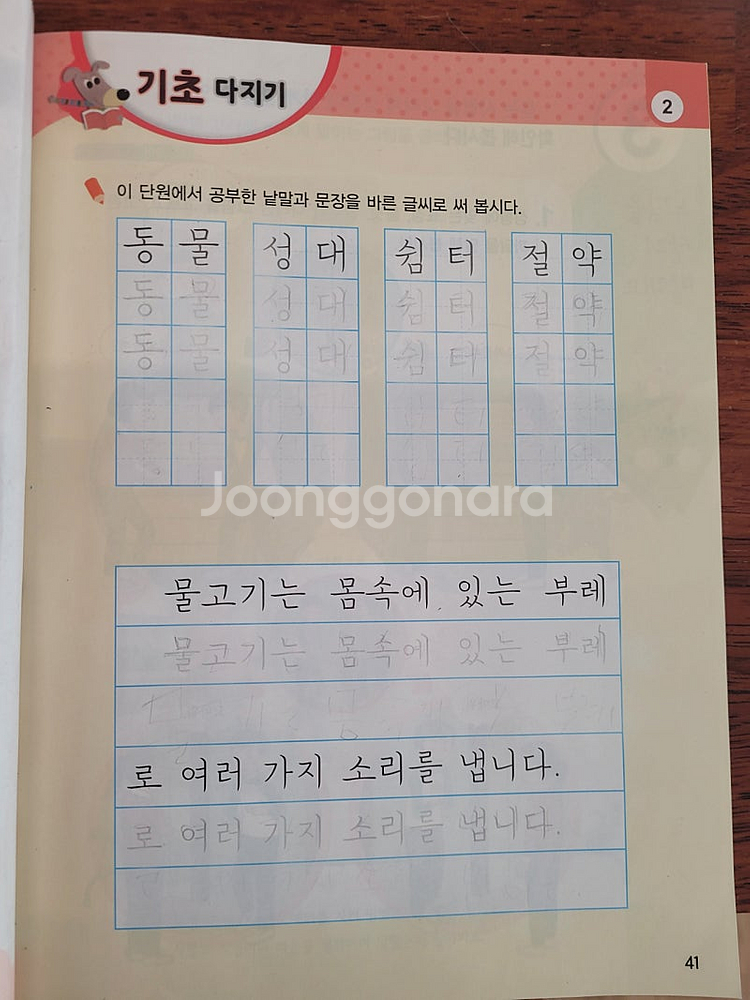 기초 다지기
2
이 단원에서 공부한 낱말과 문장을 바른 글씨로 써 봅시다.
동물 성대 쉼터 절약
동물 성대 쉼터 절약
동물 성대 쉼터 절약
Joonggonara
물고기는 몸속에 있는 부레
물고기는 몸속에 있는 부레
로 여러 가지 소리를 냅니다.
로 여러 가지 소리를 냅니다.
41